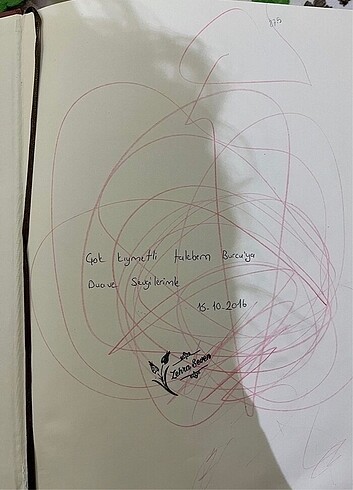 Çok kıymetli talebem Burcu'ya
Dua ve Sevgilerimle
15-10-2016
Zehra Seven